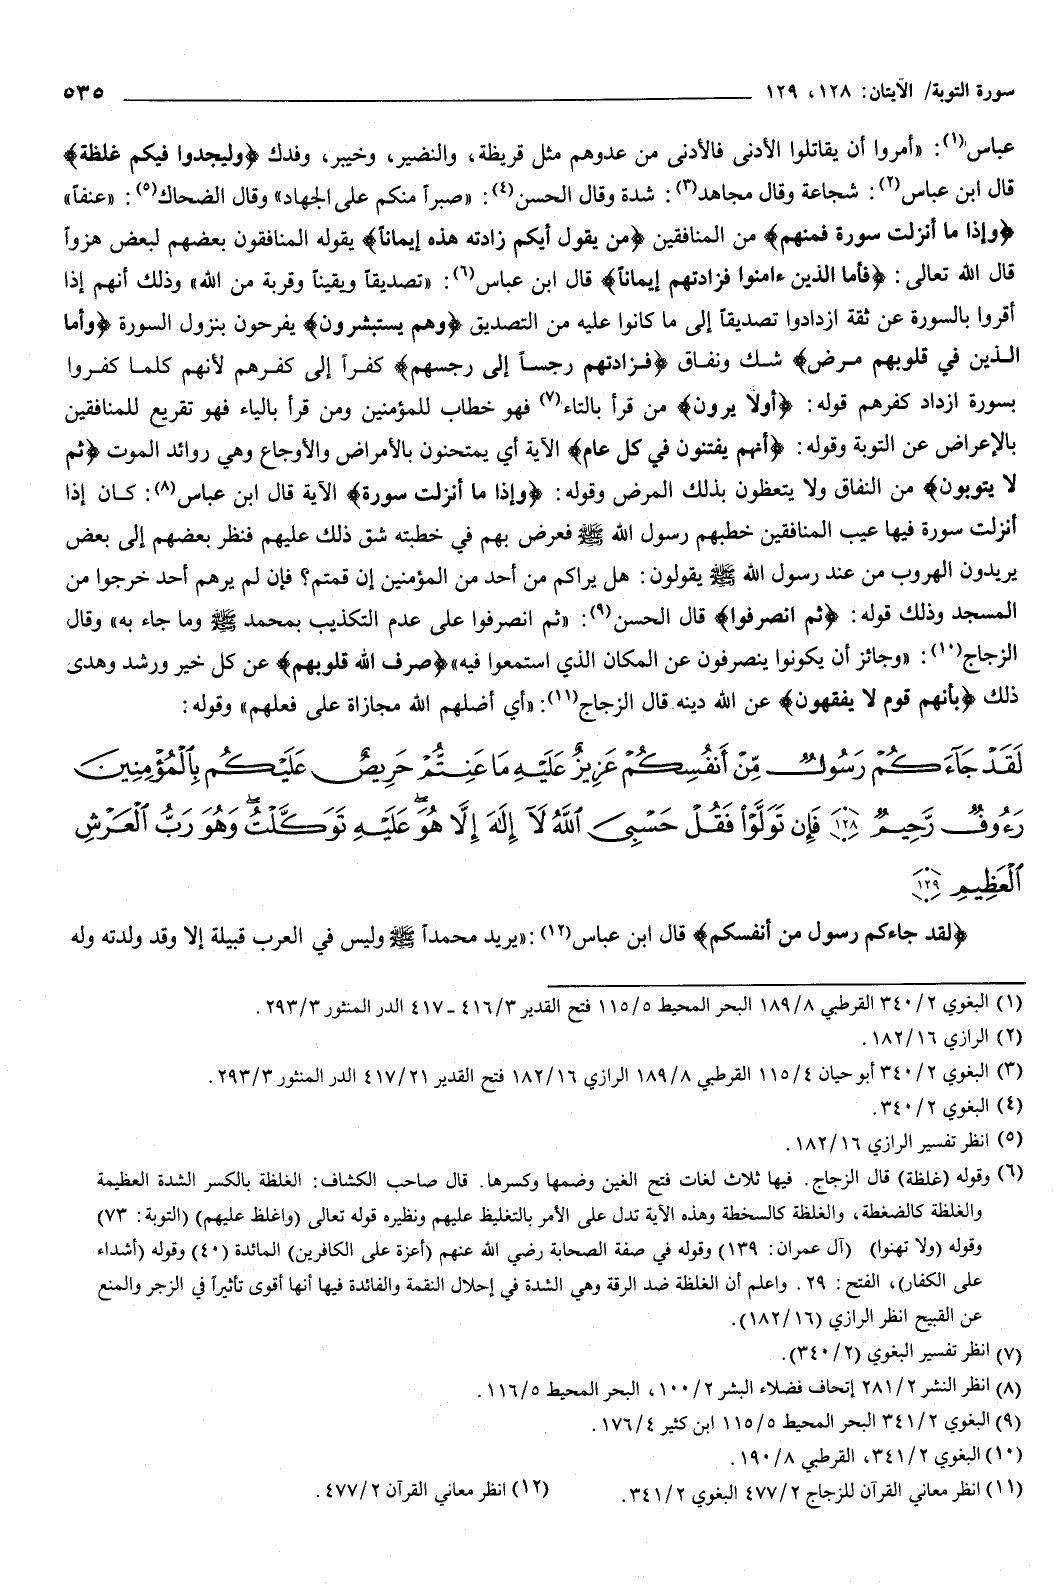 سورة التوبة/ الآيتان: ١٢٨، ١٢٩ ٥٣٥
عباس(١): «أمروا أن يقاتلوا الأدنى فالأدنى من عدوهم مثل قريظة، والنضير، وخيبر، وفدك ﴿وليجدوا فيكم غلظة﴾
قال ابن عباس(٢): شجاعة وقال مجاهد(٣): شدة وقال الحسن(٤): «صبراً منكم على الجهاد» وقال الضحاك(٥): «عنفاً»
﴿وإذا ما أنزلت سورة فمنهم﴾ من المنافقين ﴿من يقول أيكم زادته هذه إيماناً﴾ يقوله المنافقون بعضهم لبعض هزواً
قال الله تعالى: ﴿فأما الذين ءامنوا فزادتهم إيماناً﴾ قال ابن عباس(٦): «تصديقاً ويقيناً وقربة من الله» وذلك أنهم إذا
أقروا بالسورة عن ثقة ازدادوا تصديقاً إلى ما كانوا عليه من التصديق ﴿وهم يستبشرون﴾ يفرحون بنزول السورة ﴿وأما
الذين في قلوبهم مرض﴾ شك ونفاق ﴿فزادتهم رجساً إلى رجسهم﴾ كفراً إلى كفرهم لأنهم كلما كفروا
بسورة ازداد كفرهم قوله: ﴿أولا يرون﴾ من قرأ بالتاء(٧) فهو خطاب للمؤمنين ومن قرأ بالياء فهو تقريع للمنافقين
بالإعراض عن التوبة وقوله: ﴿أنهم يفتنون في كل عام﴾ الآية أي يمتحنون بالأمراض والأوجاع وهي روائد الموت ﴿ثم
لا يتوبون﴾ من النفاق ولا يتعظون بذلك المرض وقوله: ﴿وإذا ما أنزلت سورة﴾ الآية قال ابن عباس(٨): كان إذا
أنزلت سورة فيها عيب المنافقين خطبهم رسول الله ﷺ فعرض بهم في خطبته شق ذلك عليهم فنظر بعضهم إلى بعض
يريدون الهروب من عند رسول الله ﷺ يقولون: هل يراكم من أحد من المؤمنين إن قمتم؟ فإن لم يرهم أحد خرجوا من
المسجد وذلك قوله: ﴿ثم انصرفوا﴾ قال الحسن(٩): «ثم انصرفوا على عدم التكذيب بمحمد ﷺ وما جاء به» وقال
الزجاج(١٠): «وجائز أن يكونوا ينصرفون عن المكان الذي استمعوا فيه» ﴿صرف الله قلوبهم﴾ عن كل خير ورشد وهدى
ذلك ﴿بأنهم قوم لا يفقهون﴾ عن الله دينه قال الزجاج(١١): «أي أضلهم الله مجازاة على فعلهم» وقوله:
لَقَدْ جَآءَكُمْ رَسُولٌ مِّنْ أَنفُسِكُمْ عَزِيزٌ عَلَيْهِ مَا عَنِتُّمْ حَرِيصٌ عَلَيْكُم بِالْمُؤْمِنِينَ
رَءُوفٌ رَّحِيمٌ ١٢٨ فَإِن تَوَلَّوْا فَقُلْ حَسْبِيَ اللَّهُ لَآ إِلَٰهَ إِلَّا هُوَ ۖ عَلَيْهِ تَوَكَّلْتُ ۖ وَهُوَ رَبُّ الْعَرْشِ
الْعَظِيمِ ١٢٩
﴿لقد جاءكم رسول من أنفسكم﴾ قال ابن عباس(١٢): «يريد محمداً ﷺ وليس في العرب قبيلة إلا وقد ولدته وله
(١) البغوي ٣٤٠/٢ القرطبي ١٨٩/٨ البحر المحيط ١١٥/٥ فتح القدير ٤١٦/٣ ـ ٤١٧ الدر المنثور ٢٩٣/٣.
(٢) الرازي ١٨٢/١٦.
(٣) البغوي ٣٤٠/٢ أبو حيان ١١٥/٤ القرطبي ١٨٩/٨ الرازي ١٨٢/١٦ فتح القدير ٤١٧/٢١ الدر المنثور ٢٩٣/٣.
(٤) البغوي ٣٤٠/٢.
(٥) انظر تفسير الرازي ١٨٢/١٦.
(٦) وقوله (غلظة) قال الزجاج. فيها ثلاث لغات فتح الغين وضمها وكسرها. قال صاحب الكشاف: الغلظة بالكسر الشدة العظيمة
والغلظة كالضغطة، والغلظة كالسخطة وهذه الآية تدل على الأمر بالتغليظ عليهم ونظيره قوله تعالى (واغلظ عليهم) (التوبة: ٧٣)
وقوله (ولا تهنوا) (آل عمران: ١٣٩) وقوله في صفة الصحابة رضي الله عنهم (أعزة على الكافرين) المائدة (٤٠) وقوله (أشداء
على الكفار)، الفتح: ٢٩. واعلم أن الغلظة ضد الرقة وهي الشدة في إحلال النقمة والفائدة فيها أنها أقوى تأثيراً في الزجر والمنع
عن القبيح انظر الرازي (١٨٢/١٦).
(٧) انظر تفسير البغوي (٣٤٠/٢).
(٨) انظر النشر ٢٨١/٢ إتحاف فضلاء البشر ١٠٠/٢، البحر المحيط ١١٦/٥.
(٩) البغوي ٣٤١/٢ البحر المحيط ١١٥/٥ ابن كثير ١٧٦/٤.
(١٠) البغوي ٣٤١/٢، القرطبي ١٩٠/٨.
(١١) انظر معاني القرآن للزجاج ٤٧٧/٢ البغوي ٣٤١/٢. (١٢) انظر معاني القرآن ٤٧٧/٢.